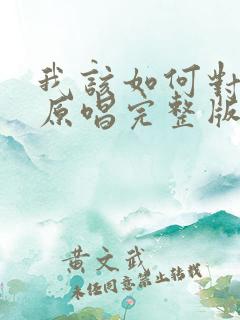 我該如何對
原唱完整版
黃文武
未經同意禁止轉載